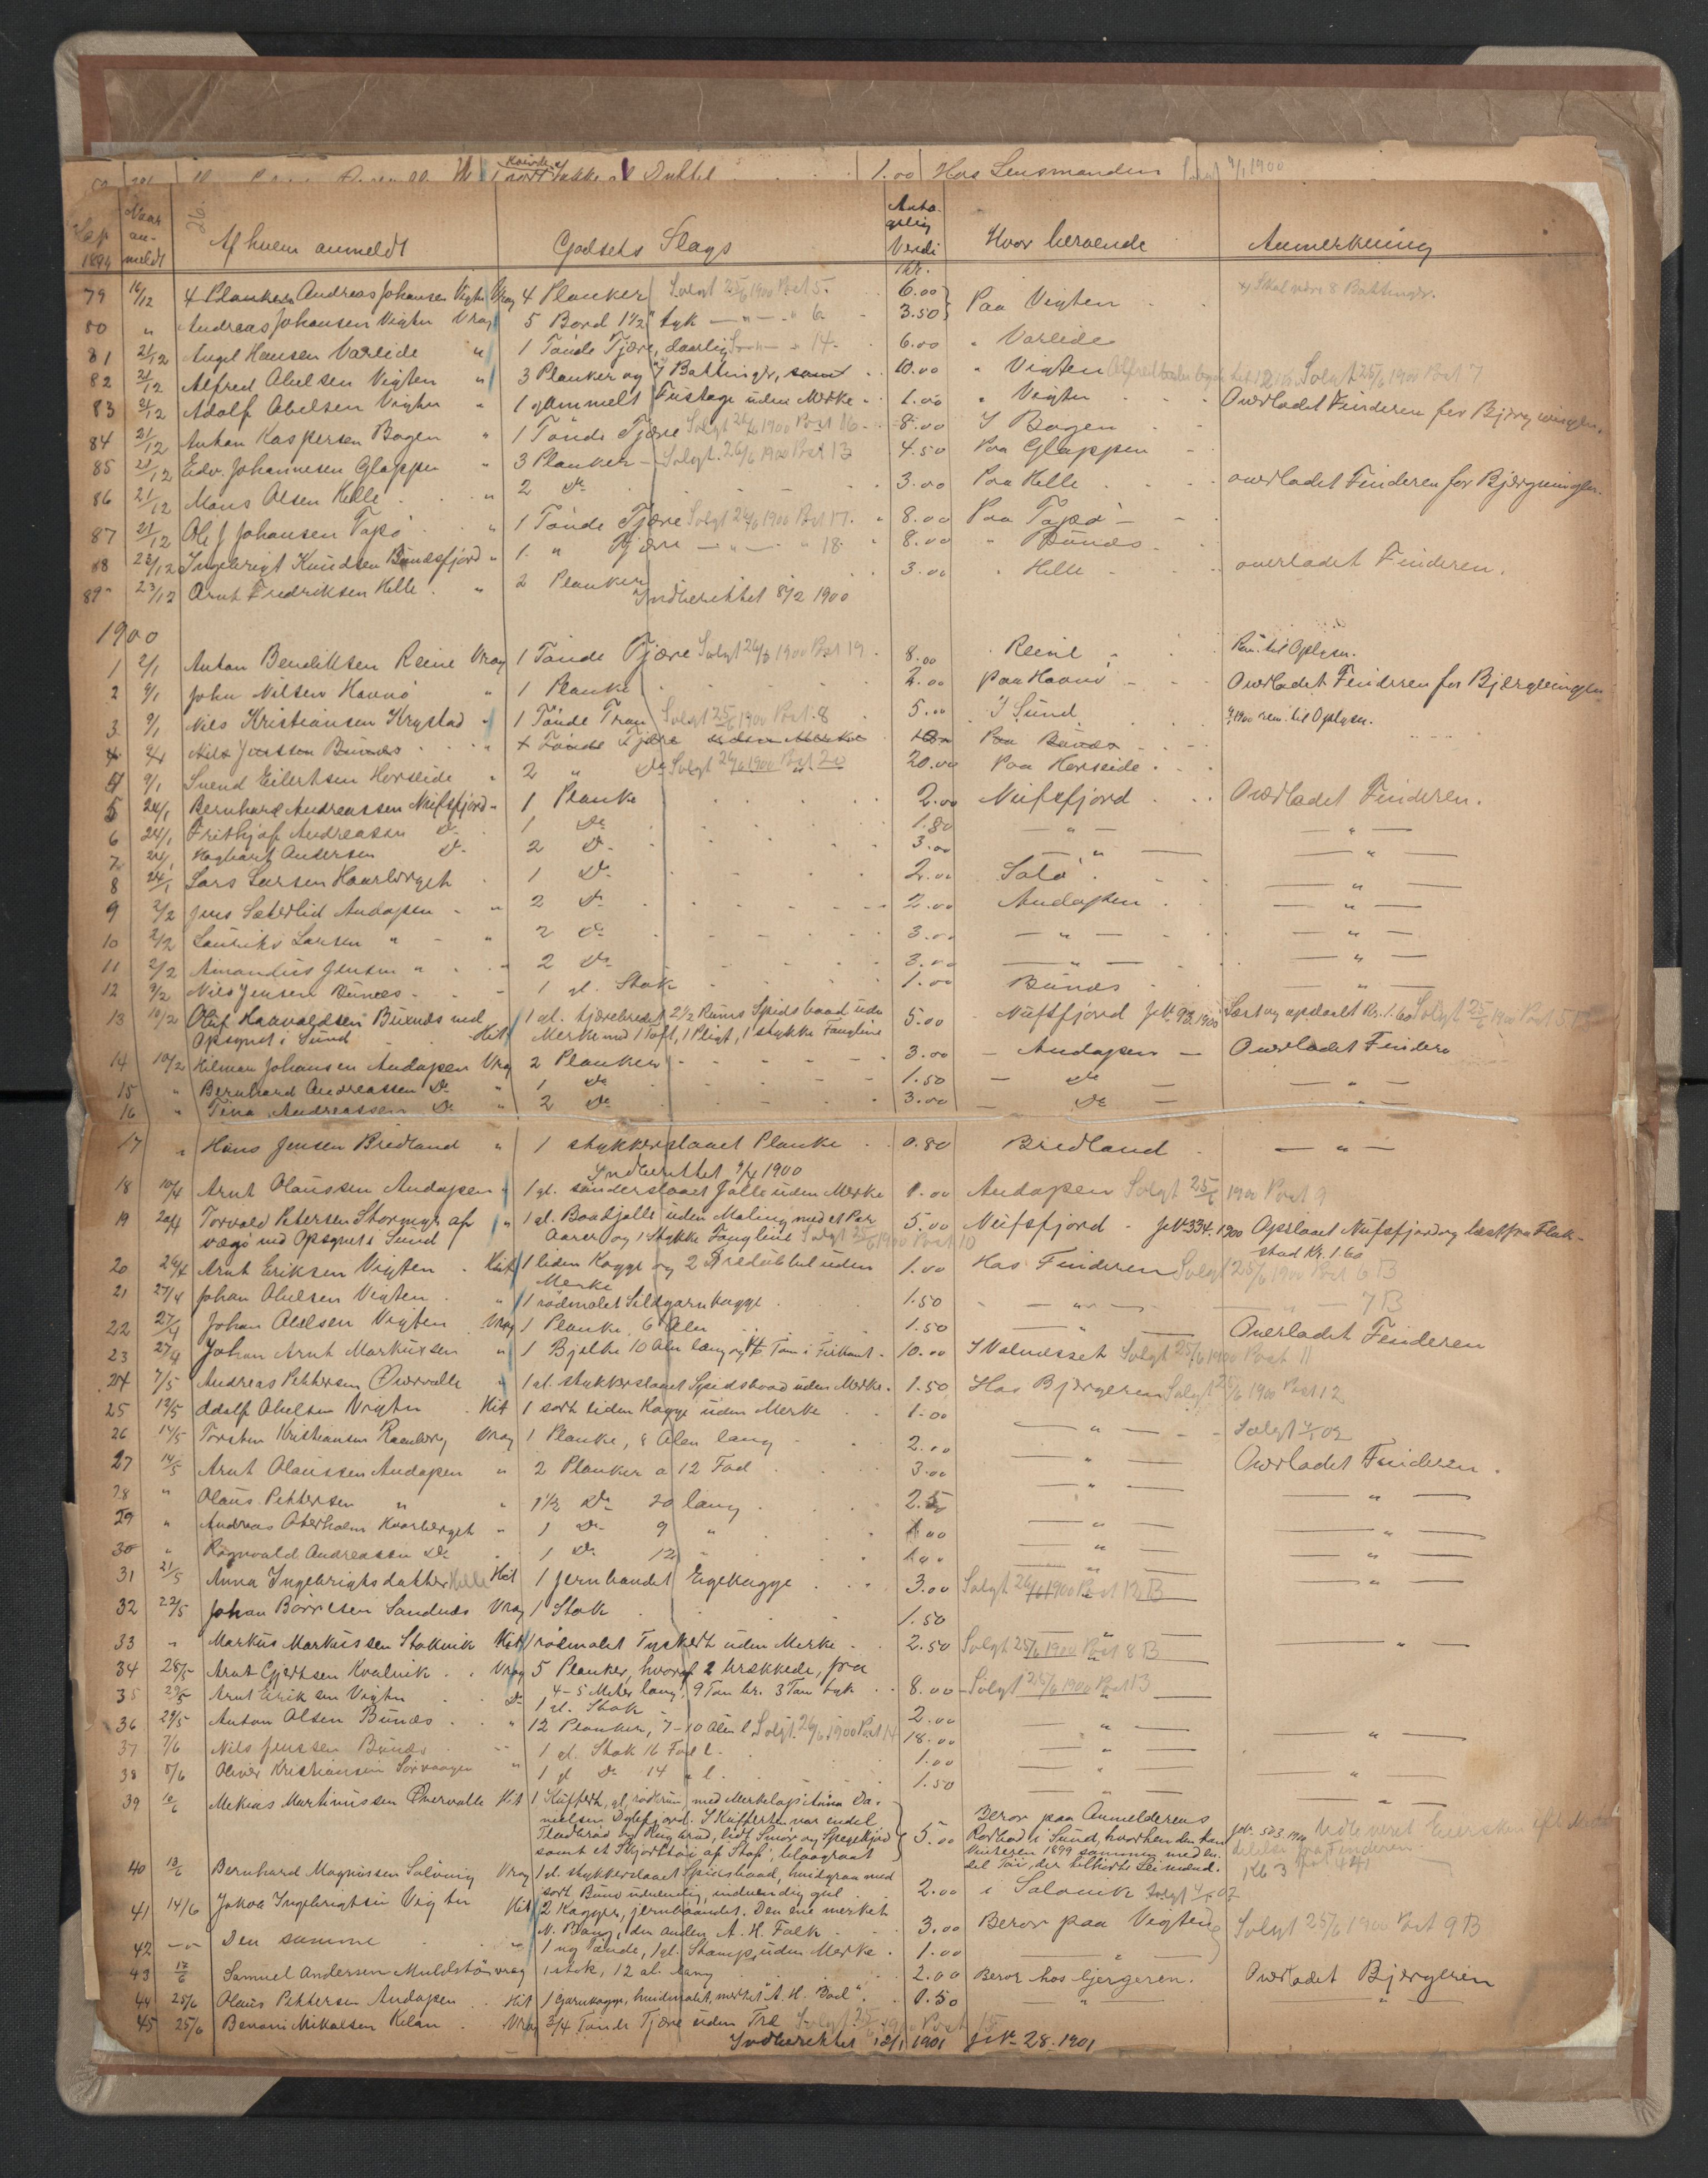 1 sort Sække Duttel 1.00 Hos Lensmanden 1900
Løp 1899 Naar anmeldt Af hvem anmeldt Godsets Slags Antagelig Verdi Kr. Hvor beroende Anmerkning
79 16/12 4 Planker Andreas Johansen Vigten Vrag 4 Planker Solgt 25/6 1900 Post 5. 6.00 Paa Vigten Skal være 8 Battinger.
80 " Andreas Johansen Vigten Vrag 5 Bord 1 1/2" tyk — " — " 6 3.50
81 21/12 Angel Hansen Vareide " 1 Tønde Tjære, daarlig " 14 6.00 " Vareide
82 21/12 Alfred Abelsen Vigten " 3 Planker og 7 Battinger, samt 10.00 " Vigten Solgt 25/6 1900 Post 7
83 21/12 Adolf Abelsen Vigten " 1 gammelt Fustage uden Merke 1.00 " Vigten Overladt Finderen for Bjergningen.
84 21/12 Anton Kaspersen Bogen " 1 Tønde Tjære Solgt 26/6 1900 Post 16 8.00 I Bogen
85 21/12 Edv. Johannesen Glappen " 3 Planker Solgt 26/6 1900 Post 13 4.50 Paa Glappen
86 21/12 Mons Olsen Helle " 2 Do 3.00 Paa Helle overladet Finderen for Bjergningen.
87 21/12 Ole J Johansen Tapø " 1 Tønde Tjære Solgt 26/6 1900 Post 17. 8.00 Paa Tapø
88 23/12 Ingebrigt Knudsen Bundsfjord " 1 " Tjære — " — " 18 8.00 " Bunds
89 23/12 Arnt Fredriksen Helle " 2 Planker 3.00 " Helle overladet Finderen.
Indberettet 8/2 1900
1900
1 2/1 Anton Bendiksen Reine Vrag 1 Tønde Tjære Solgt 26/6 1900 Post 19 8.00 Reine Rem. til Oplysn.
2 9/1 John Nilsen Havnø " 1 Planke 2.00 paa Havnø Overladet Finderen for Bjergningen
3 9/1 Nils Kristiansen Krystad " 1 Tønde Tran Solgt 25/6 1900 Post 8 5.00 I Sund 1900 rem. til Oplysn.
4 Nils Jenssen Bunds 1 Tønde Tjære uden Merke 10 Paa Bunds
4 9/1 Svend Eilertsen Horseide " 2 " Do Solgt 26/6 1900 Post 20 20.00 Paa Horseide
5 24/1 Bernhard Andreassen Nufsfjord " 1 Planke 2.00 Nufsfjord Overladet Finderen.
6 24/1 Frithjof Andreassen Do 1 Do 1.80 — " — — " —
7 24/1 Haghart Andersen Do 2 Do 3.00 — " — — " —
8 24/1 Lars Larsen Haarberget 1 Do 2.00 Salø — " —
9 2/2 Jens Sæterlid Andopen " 2 Do 2.00 Andopen — " —
10 2/2 Lauriks Larsen " " 2 Do 3.00 — " — — " —
11 2/2 Amandus Jensen " " 2 Do 3.00 — " — — " —
12 9/2 Nils Jensen Bunds 1 gl. Stok 1.00 Bunds — " —
13 10/2 Oluf Haavaldsen Buxnæs ved 1 gl. tjærebredt 2 1/2 Rums Spidsbaad uden 5.00 Nufsfjord JNo 93.1900 Læst og opslaaet Kr. 1.60 Solgt 25/6 1900 Post
Opsynet i Sund Hit Merke med 1 Toft, 1 Pligt, 1 stykke Fangline
14 10/2 Hilman Johansen Andopen Vrag 2 Planker 3.00 — Andopen — Overladet Finderen
15 " Bernhard Andreassen Do " 1 Do 1.50 — Do — — " —
16 " Tina Andreassen Do " 2 Do 3.00 — Do — — " —
17 " Hans Jensen Bredland " 1 stykkerslaaet Planke 0.80 Bredland — " —
Indberettet 9/4 1900
18 10/4 Arnt Olaussen Andopen " 1 gl. sønderslaaet Jolle uden Merke 1.00 Andopen Solgt 25/6 1900 Post 9
19 20/4 Torvald Petersen Stormyr af " 1 gl. Baadjolle uden Maling med et Par 5.00 Nufsfjord JNo 334.1900 Opslaaet Nufsfjord og læst fra Flak-
vægø ved Opsynet i Sund Aarer og 1 Stykke Fangline Solgt 25/6 1900 Post 10 stad Kr. 1.60
20 26/4 Arnt Eriksen Vigten Hit 1 liden Kagge og 2 Trædubbel uden 1.00 Hos Finderen Solgt 25/6 1900 Post 6 B
Merke
21 27/4 Johan Abelsen Vigten " 1 rødmalet Sildgarnkagge 1.50 — " — — " — 7 B
22 27/4 Johan Abelsen Vigten Vrag 1 Planke, 6 Alen 1.50 — " — Overladet Finderen
23 27/4 Johan Arnt Markussen " 1 Bjelke 10 Alen lang og Tom i Firkant 10.00 I Valnesset Solgt 25/6 1900 Post 11
24 7/5 Andreas Pettersen Overvolle " 1 gl. stykkerslaaet Spidsbaad uden Merke 1.50 Hos Bjergeren Solgt 25/6 1900 Post 12
25 12/5 Adolf Abelsen Vigten Hit 1 sort liden Kagge uden Merke 1.00
26 14/5 Torsten Kristiansen Ramberg Vrag 1 Planke, 8 Alen lang 2.00 — " — Solgt 02
27 14/5 Arnt Olaussen Andopen " 2 Planker a 12 Fod 3.00 — " — Overladet Finderen.
28 " Olaus Pettersen " " 1 1/2 Do 20 lang 2.50 — " — — " —
29 " Andreas Oterholm Haarberget " 1 Do 9 " 1.00 — " — — " —
30 " Ragnvald Andreassen Do 1 Do 12 " 1.00 — " — — " —
31 21/5 Anna Ingebrigtsdatter Helle Hit 1 jernbandet Egekagge 3.00 Solgt 26/6 1900 Post 12 B — " —
32 22/5 Johan Børresen Sandnæs Vrag 1 Stok 1.50
33 " Markus Markussen Stokvik Hit 1 rødmalet Tyskert uden Merke 2.50 Solgt 25/6 1900 Post 8 B — " —
34 28/5 Arnt Gjertsen Kvalvik Vrag 5 Planker, hvoraf 2 brækkede, fra
4-5 Meter lang. 9 Tom br. 3 Tom tyk 8.00 Solgt 25/6 1900 Post 13
35 29/5 Arnt Eriksen Vigten Do 1 gl. Stok 2.00
36 29/5 Anton Olsen Bunds " 12 Planker, 7-10 Alen l Solgt 26/6 1900 Post 14 18.00 — " — — " —
37 7/6 Nils Jenssen Bunds " 1 gl. Stok 16 Fod l. 1.00 — " —
38 8/6 Oliver Kristiansen Sørvaagen " 1 gl Do 14 " l. 1.50 — " — — " —
39 10/6 Mekias Martinussen Overvolle Hit 1 Kuffert, gl, rødbrun, med Merkelap: Anna Da-
nielsen Dybfjord. I Kufferten var endel
Fladbrød og Rugbrød, lidt Smør og Spegekjød
samt et Skjorttøi af Stof, blaagraat 5.00 Beror paa Anmelderens
Rorbod i Sund, hvorhen den kom
Vinteren 1899 sammen med en
del Tøi, der tilhørte Leimænd. JNo 503.1900 Udleveret
40 13/6 Bernhard Magnussen Salvvig Vrag 1 gl. stykkerslaaet Spidsbaad, hvidgraa med
sort Bund udvendig, indvendig gul 2.00 i Solovik Solgt 02
41 14/6 Jakob Ingebrigtsen Vigten Hit 2 Kagger, jernbaandet. Den ene merket
N. Bang, den anden A. H. Falk 3.00 Beror paa Vigten Solgt 25/6 1900 Post 9 B
42 — " — Den samme " 1 ny Tønde, 1 gl. Stamp, uden Merke 1.00 — " —
43 17/6 Samuel Andersen Muldstøn vrag 1 stok, 12 al. lang 2.00 Beror hos bjergeren. Overladet Bjergeren
44 25/6 Olaus Pettersen Andopen Hit 1 Garnkagge, hvidmalet, merket "A. H. Bod". 0.50 — " — — " —
45 25/6 Benoni Mikalsen Kilan Vrag 3/4 Tønde Tjære uden Træ Solgt 25/6 1900 Post 15
Indberettet 12/1 1901 JNo 28.1901